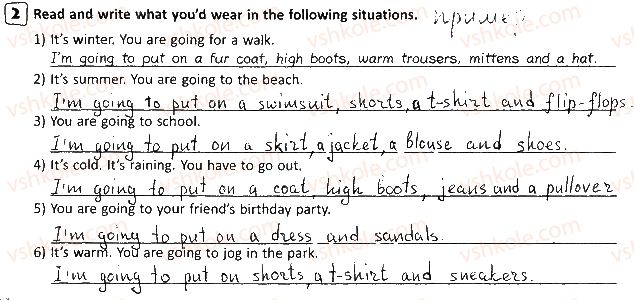 2 Read and write what you'd wear in the following situations. пример
1) It's winter. You are going for a walk.
I'm going to put on a fur coat, high boots, warm trousers, mittens and a hat.
2) It's summer. You are going to the beach.
I'm going to put on a swimsuit, shorts, a t-shirt and flip-flops.
3) You are going to school.
I'm going to put on a skirt, a jacket, a blouse and shoes.
4) It's cold. It's raining. You have to go out.
I'm going to put on a coat, high boots, jeans and a pullover
5) You are going to your friend's birthday party.
I'm going to put on a dress and sandals.
6) It's warm. You are going to jog in the park.
I'm going to put on shorts, a t-shirt and sneakers.